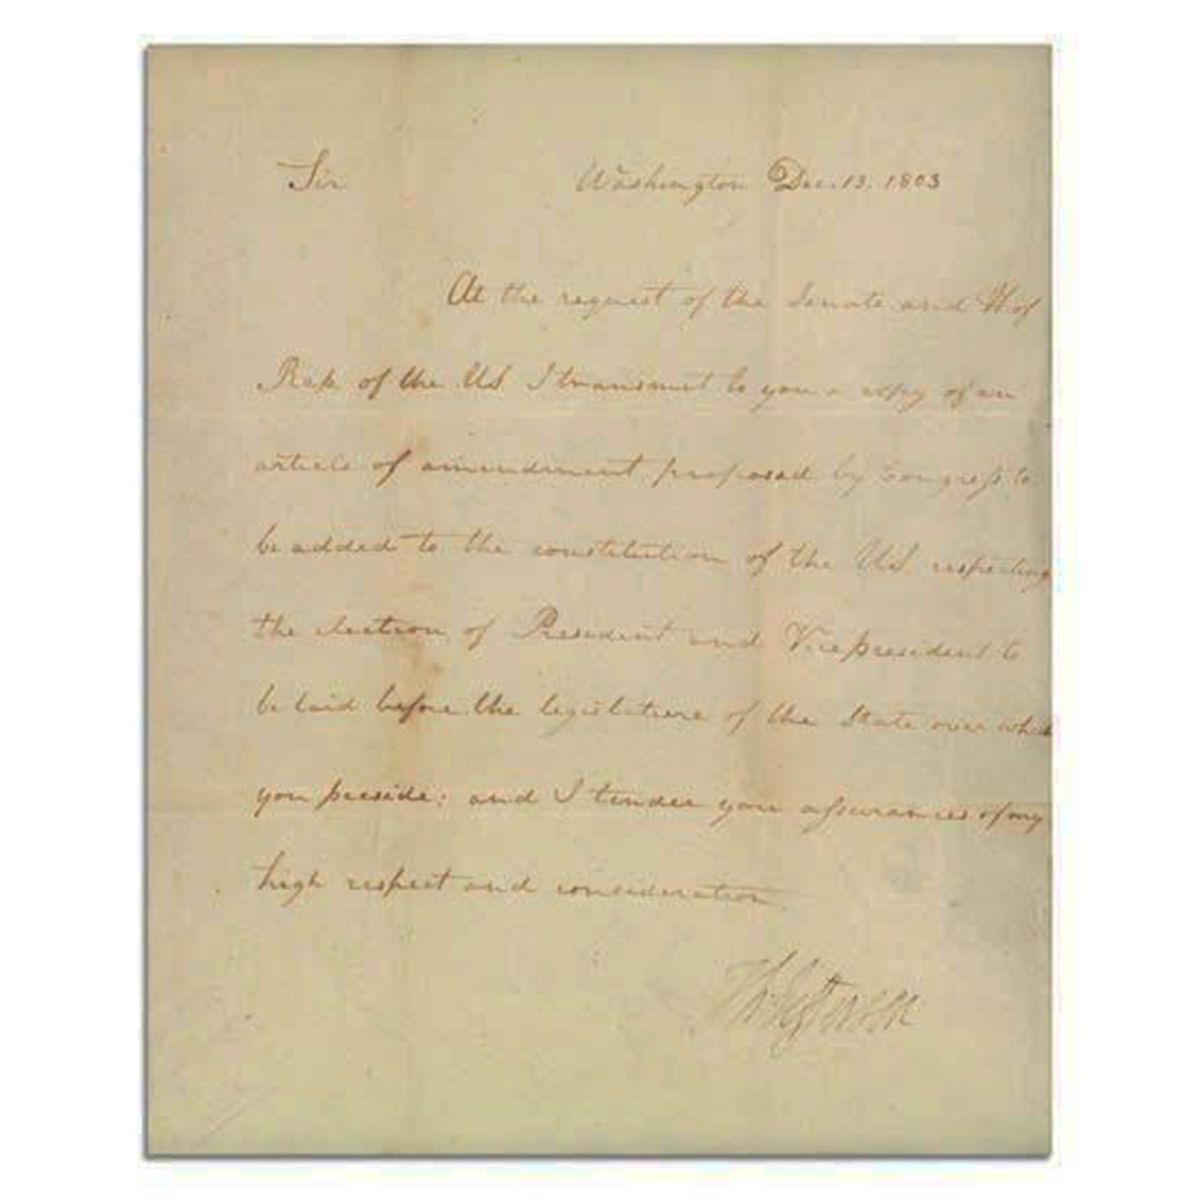 Sir Washington Dec. 13. 1803
At the request of the Senate and H of
Rep of the US I transmit to you a copy of an
article of amendment proposed by Congress to
be added to the constitution of the US. respecting
the election of President and Vice president to
be laid before the legislature of the State over which
you preside: and I tender you assurances of my
high respect and consideration.
Th: Jefferson